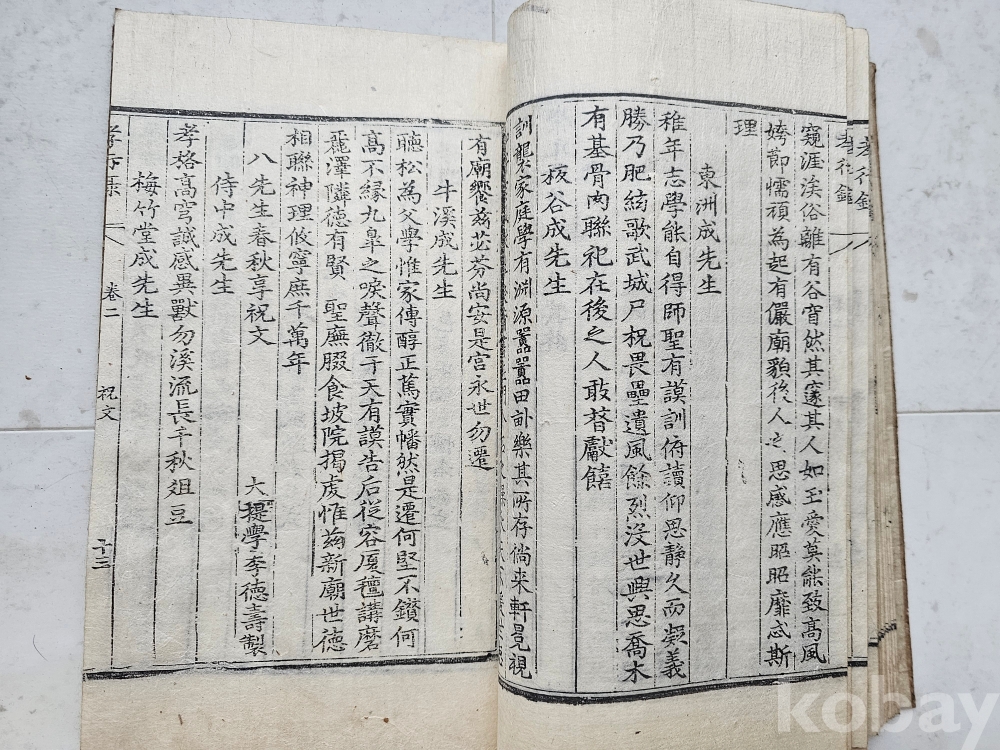 孝行錄
窺涯涘俗離有谷窅然其邃其人如玉愛莫能致高風
姱節懦頑為起有儼廟貌後人之思感應昭昭靡忒斯
理
東洲成先生
稚年志學能自得師聖有謨訓俯讀仰思靜久而凝義
勝乃肥絃歌武城尸祝畏壘遺風餘烈沒世興思喬木
有基骨肉聯祀在後之人敢替獻饎
板谷成先生
訓襲家庭學有淵源囂囂田畝樂其所存倘来軒冕視
有廟饗玆苾芬尚安是宮永世勿遷
牛溪成先生
聽松為父學惟家傳醇正篤實幡然是遷何堅不鑽何
高不緣九皐之唳聲徹于天有謨告后從容厦氊講磨
麗澤隣德有賢 聖廡腏食坡院揭虔惟玆新廟世徳
相聯神理攸寧庶千萬年
八先生春秋享祝文 大提學李德壽製
侍中成先生
孝格高穹誠感異獸勿溪流長千秋俎豆
梅竹堂成先生
孝行錄 卷二 祝文 十三
kobay